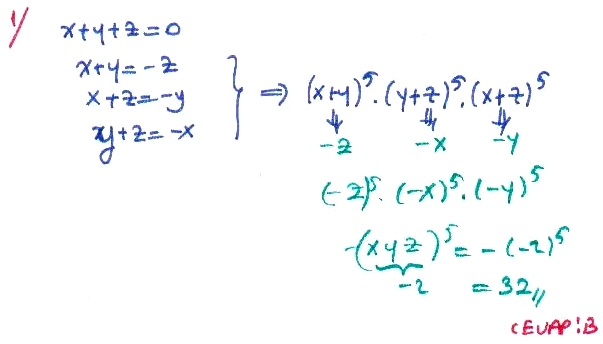 1/ x+y+z=0
x+y=-z
x+z=-y
y+z=-x
⇒ (x+y)^5 . (y+z)^5 . (x+z)^5
-z -x -y
(-z)^5 . (-x)^5 . (-y)^5
-(xyz)^5 = -(-2)^5
-2 = 32//
CEVAP:B